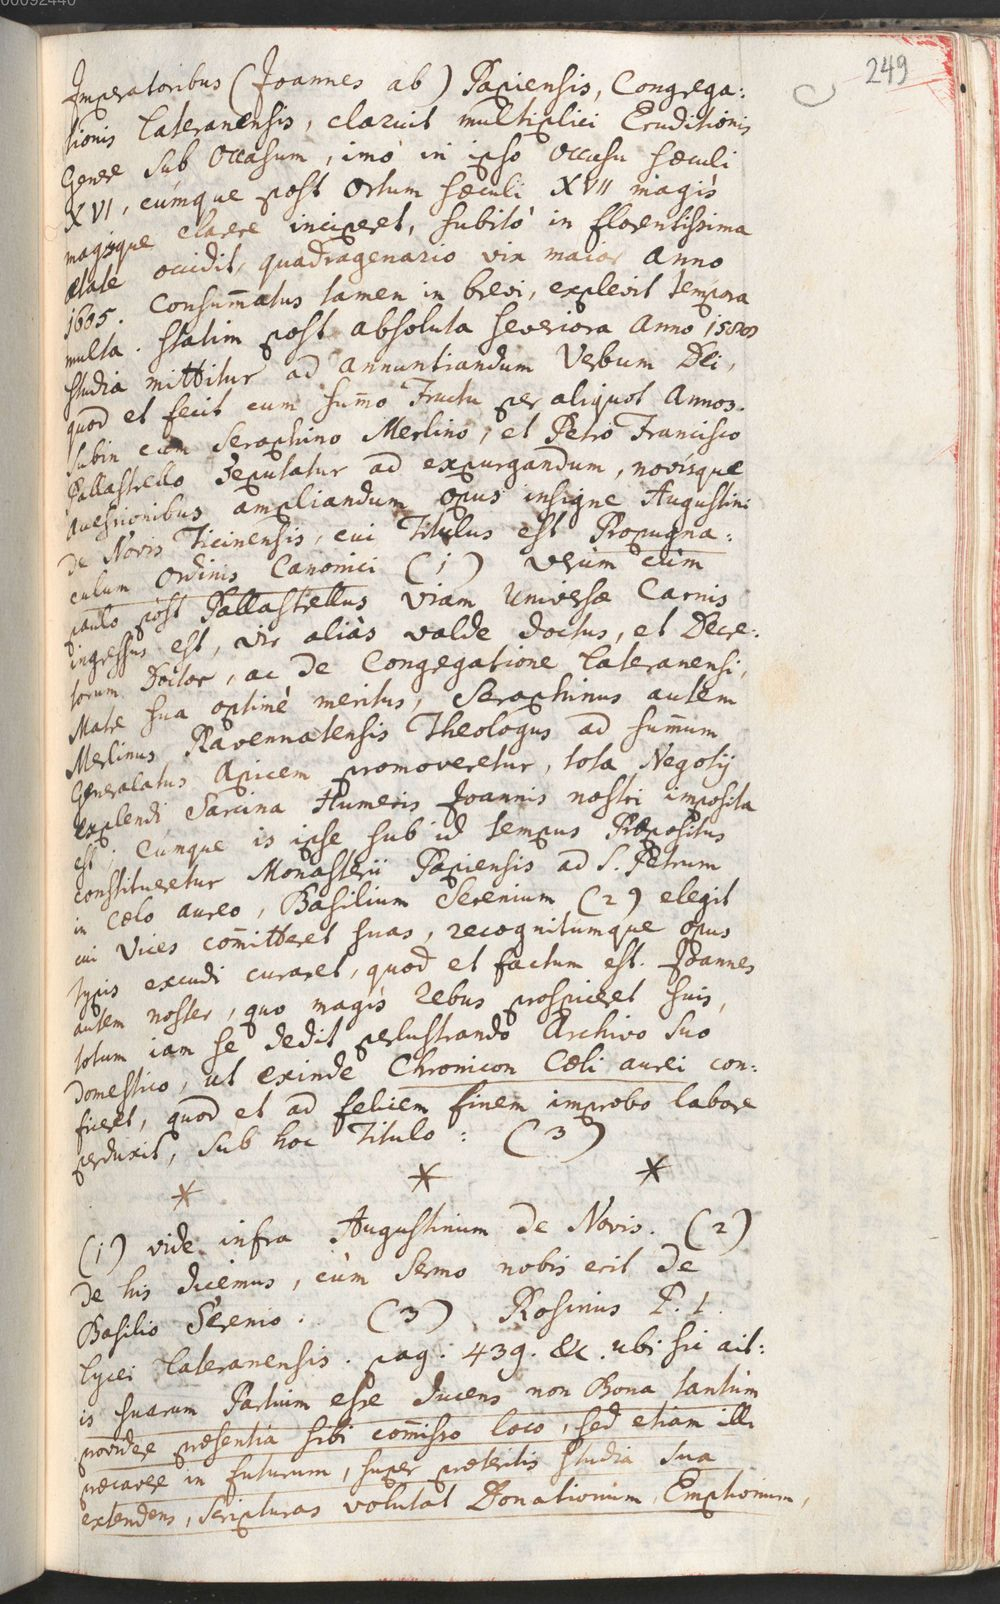 00092440
249
Imperatoribus (Joannes ab) Papiensis, Congrega:
tionis Lateranensis, claruit multiplici Eruditionis
Genere sub Occasum, imò in ipso occasu sæculi
XVI, cúmque post Ortum sæculi XVII magis
magisque clarere inciperet, subitò in florentissima
ætate occidit, quadragenario vix maior Anno
1605. Consum̄atus tamen in brevi, explevit tempora
multa. Statim post absoluta severiora Anno 1580
studia mittitur ad Annuntiandum Verbum Dei,
quod et fecit cum sum̄o Fructu per aliquot Annos.
Subin cum Seraphino Merlino, et Petro Francisco
Pallastrello deputatur ad expurgandum, novisque
Quæstionibus ampliandum opus insigne Augustini
de Novis Ticinensis, cui Titulus est Propugna:
culum Ordinis Canonici (1) verùm cùm
paulo pòst Pallastrellus viam Universæ Carnis
ingressus est, vir aliàs valde doctus, et Decre:
torum Doctor, ac de Congegatione Lateranensi,
Matre sua optimè meritus, Seraphinus autem
Merlinus Ravennatensis Theologus ad sum̄um
Generalatus Apicem promoveretur, tota Negotij
explendi Sarcina Humeris Joannis nostri imposita
est; Cúmque is ipse sub id tempus Præpositus
constitueretur Monasterii Papiensis ad S. Petrum
in Cœlo aureo, Basilium Serenium (2) elegit
cui Vices com̄itteret suas, recognitumque opus
typis excudi curaret, quod et factum est. Joannes
autem noster, quo magis rebus prospiceret suis,
totum iam se dedit perlustrando Archivo suo
domestico, ut exinde Chronicon Cœli aurei con:
ficeret, quod et ad felicem finem improbo labore
perduxit, sub hoc Titulo: (3)
* * *
(1) vide infra Augustinum de Novis. (2)
de his dicemus, cùm sermo nobis erit de
Basilio Serenio. (3) Rosinius P. 1.
Lycei Lateranensis. pag. 439. &c. ubi sic ait:
is suarum Partium esse ducens non Bona tantùm
providere præsentia sibi com̄isso loco, sed etiam illi
præcavere in futurum, super præteritis studia sua
extendens, scripturas volutat Donationum, Emptionum,